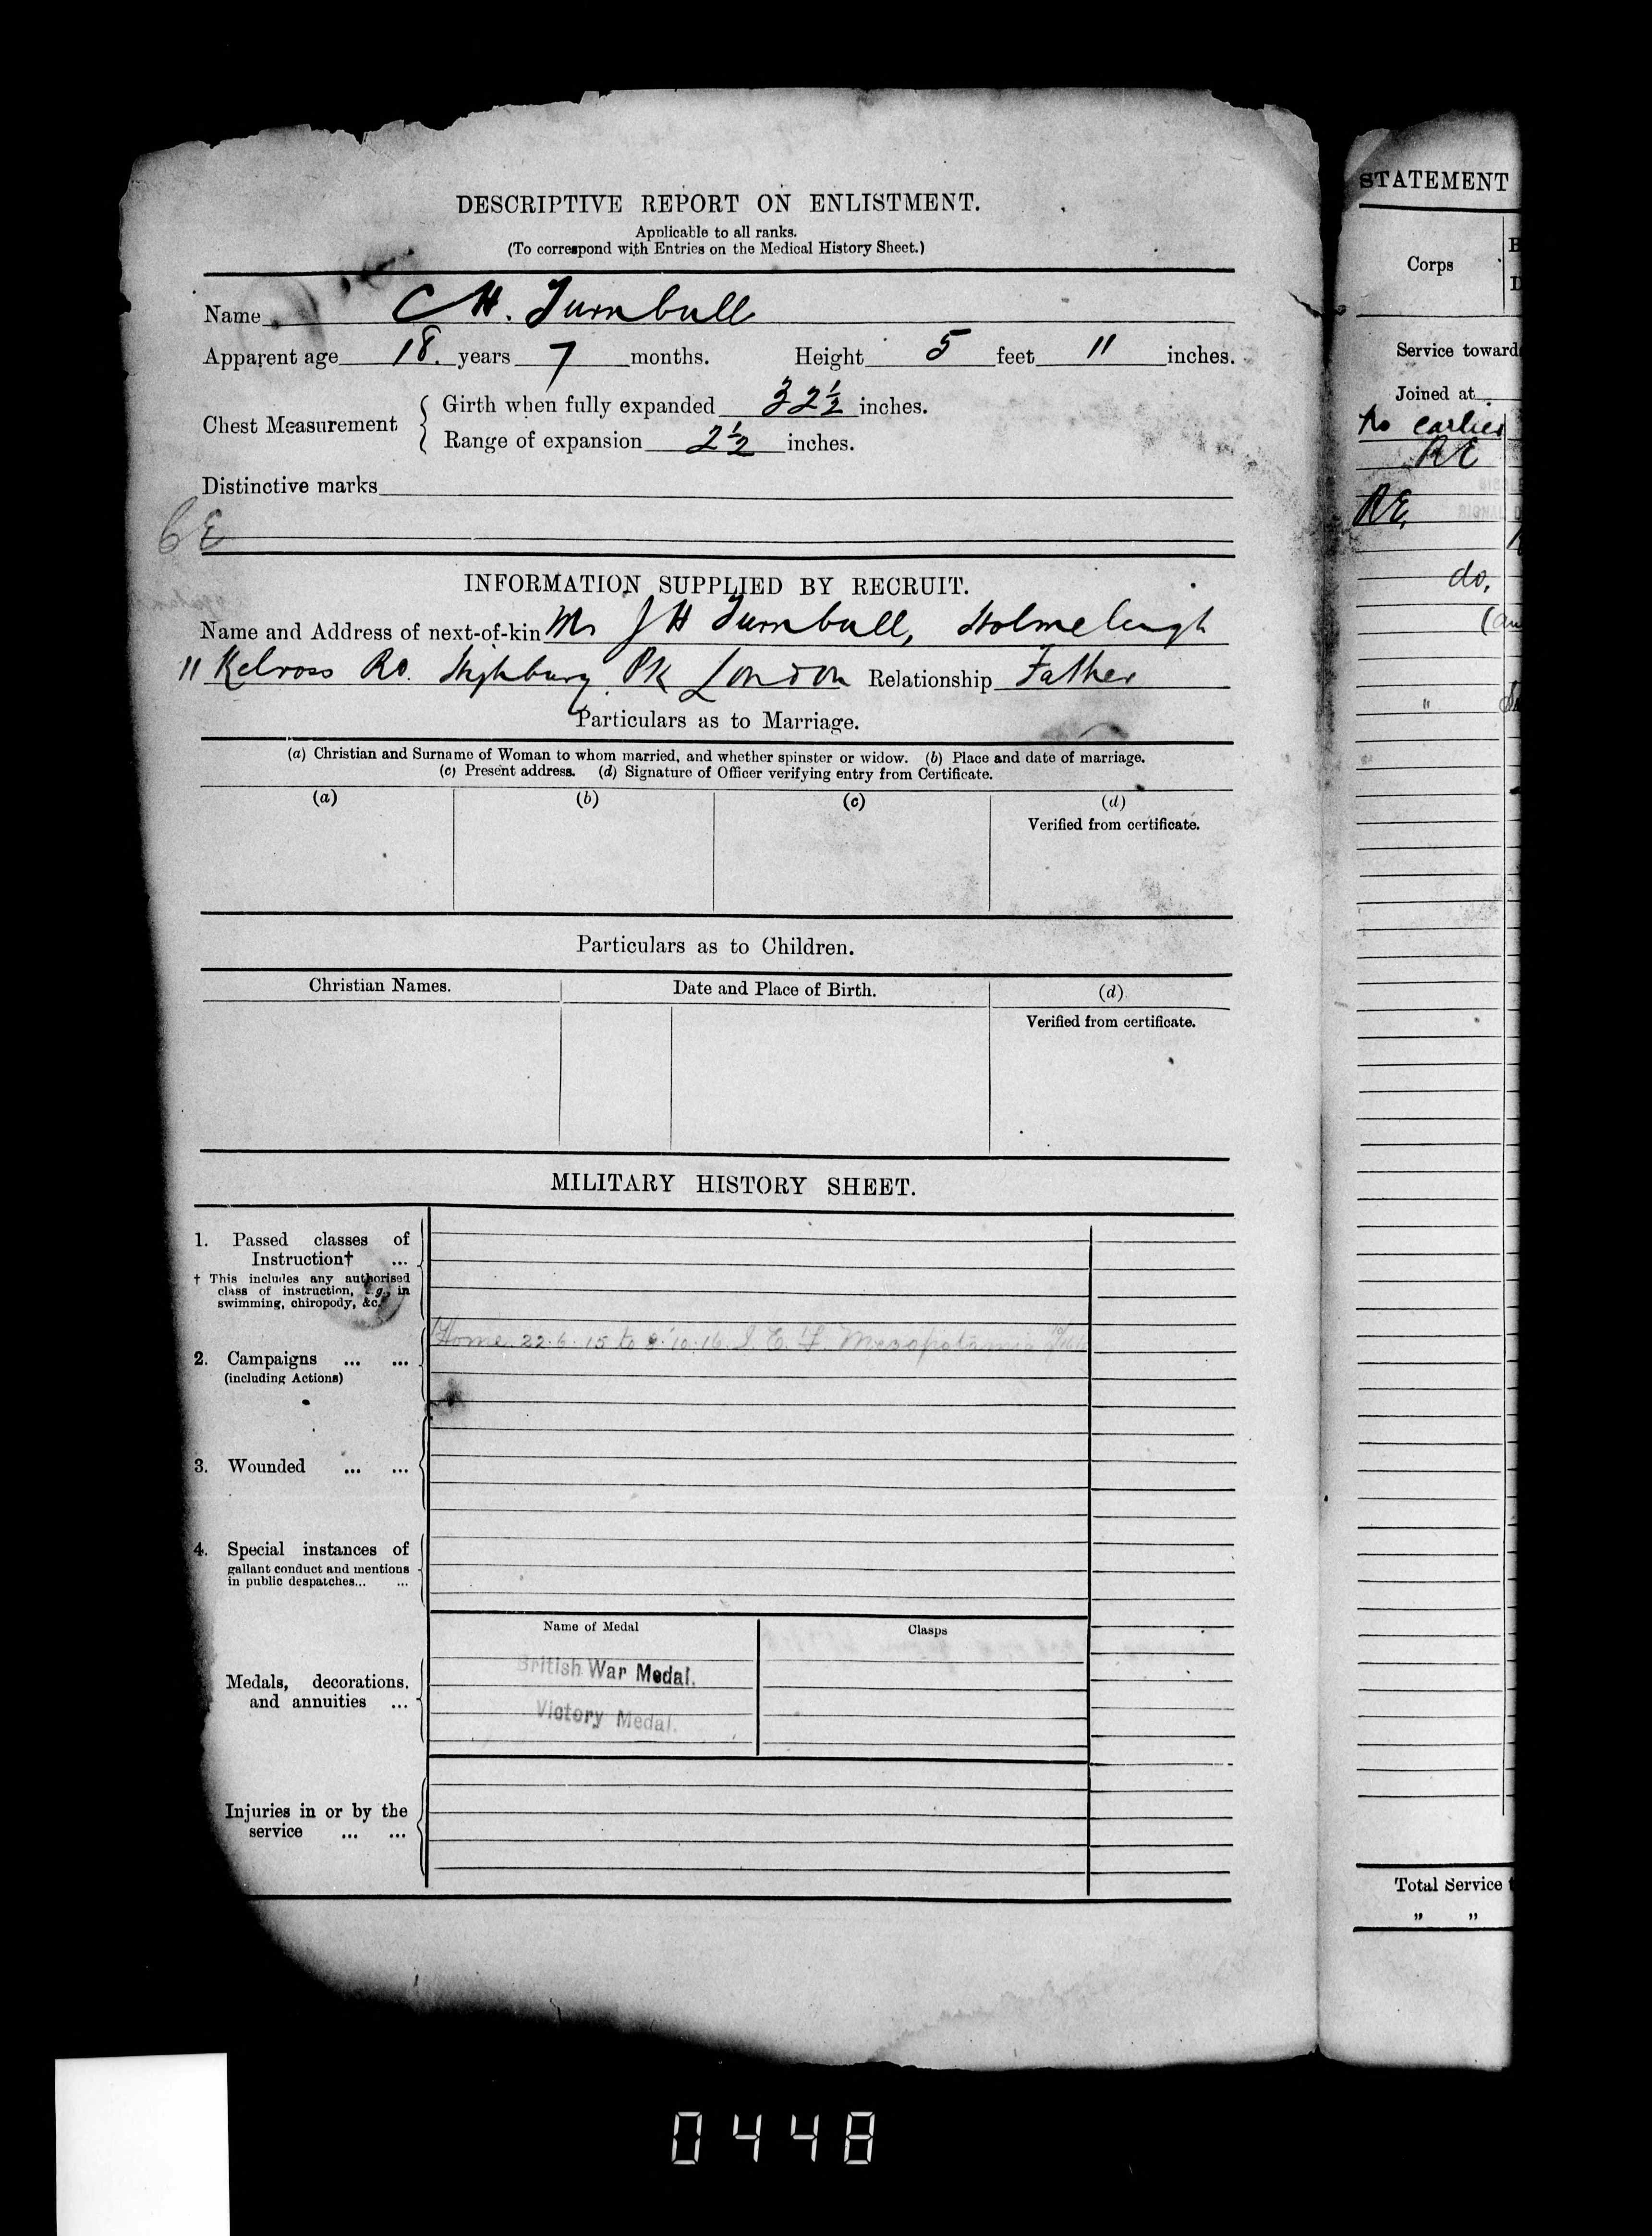 DESCRIPTIVE REPORT ON ENLISTMENT.
Applicable to all ranks.
(To correspond with Entries on the Medical History Sheet.)
Name C H. Turnbull
Apparent age 18. years 7 months. Height 5 feet 11 inches.
Chest Measurement { Girth when fully expanded 32½ inches.
Range of expansion 2½ inches.
Distinctive marks
CE
INFORMATION SUPPLIED BY RECRUIT.
Name and Address of next-of-kin Mr J H Turnbull, Holmeleigh
11 Kelross Rd. Highbury Pk London Relationship Father
Particulars as to Marriage.
(a) Christian and Surname of Woman to whom married, and whether spinster or widow. (b) Place and date of marriage.
(c) Present address. (d) Signature of Officer verifying entry from Certificate.
(a) (b) (c) (d)
Verified from certificate.
Particulars as to Children.
Christian Names. Date and Place of Birth. (d)
Verified from certificate.
MILITARY HISTORY SHEET.
1. Passed classes of
Instruction† ...
† This includes any authorised
class of instruction, e.g., in
swimming, chiropody, &c.
Home 22.6.15 to 9.10.16. I. E. F. Mesopotamia
2. Campaigns ... ...
(including Actions)
3. Wounded ... ...
4. Special instances of
gallant conduct and mentions
in public despatches... ...
Name of Medal Clasps
British War Medal.
Medals, decorations,
and annuities ...
Victory Medal.
Injuries in or by the
service ... ...
STATEMENT
Corps
Service toward
Joined at
No earlier
RE
RE.
do,
"
Total Service
" "
0448